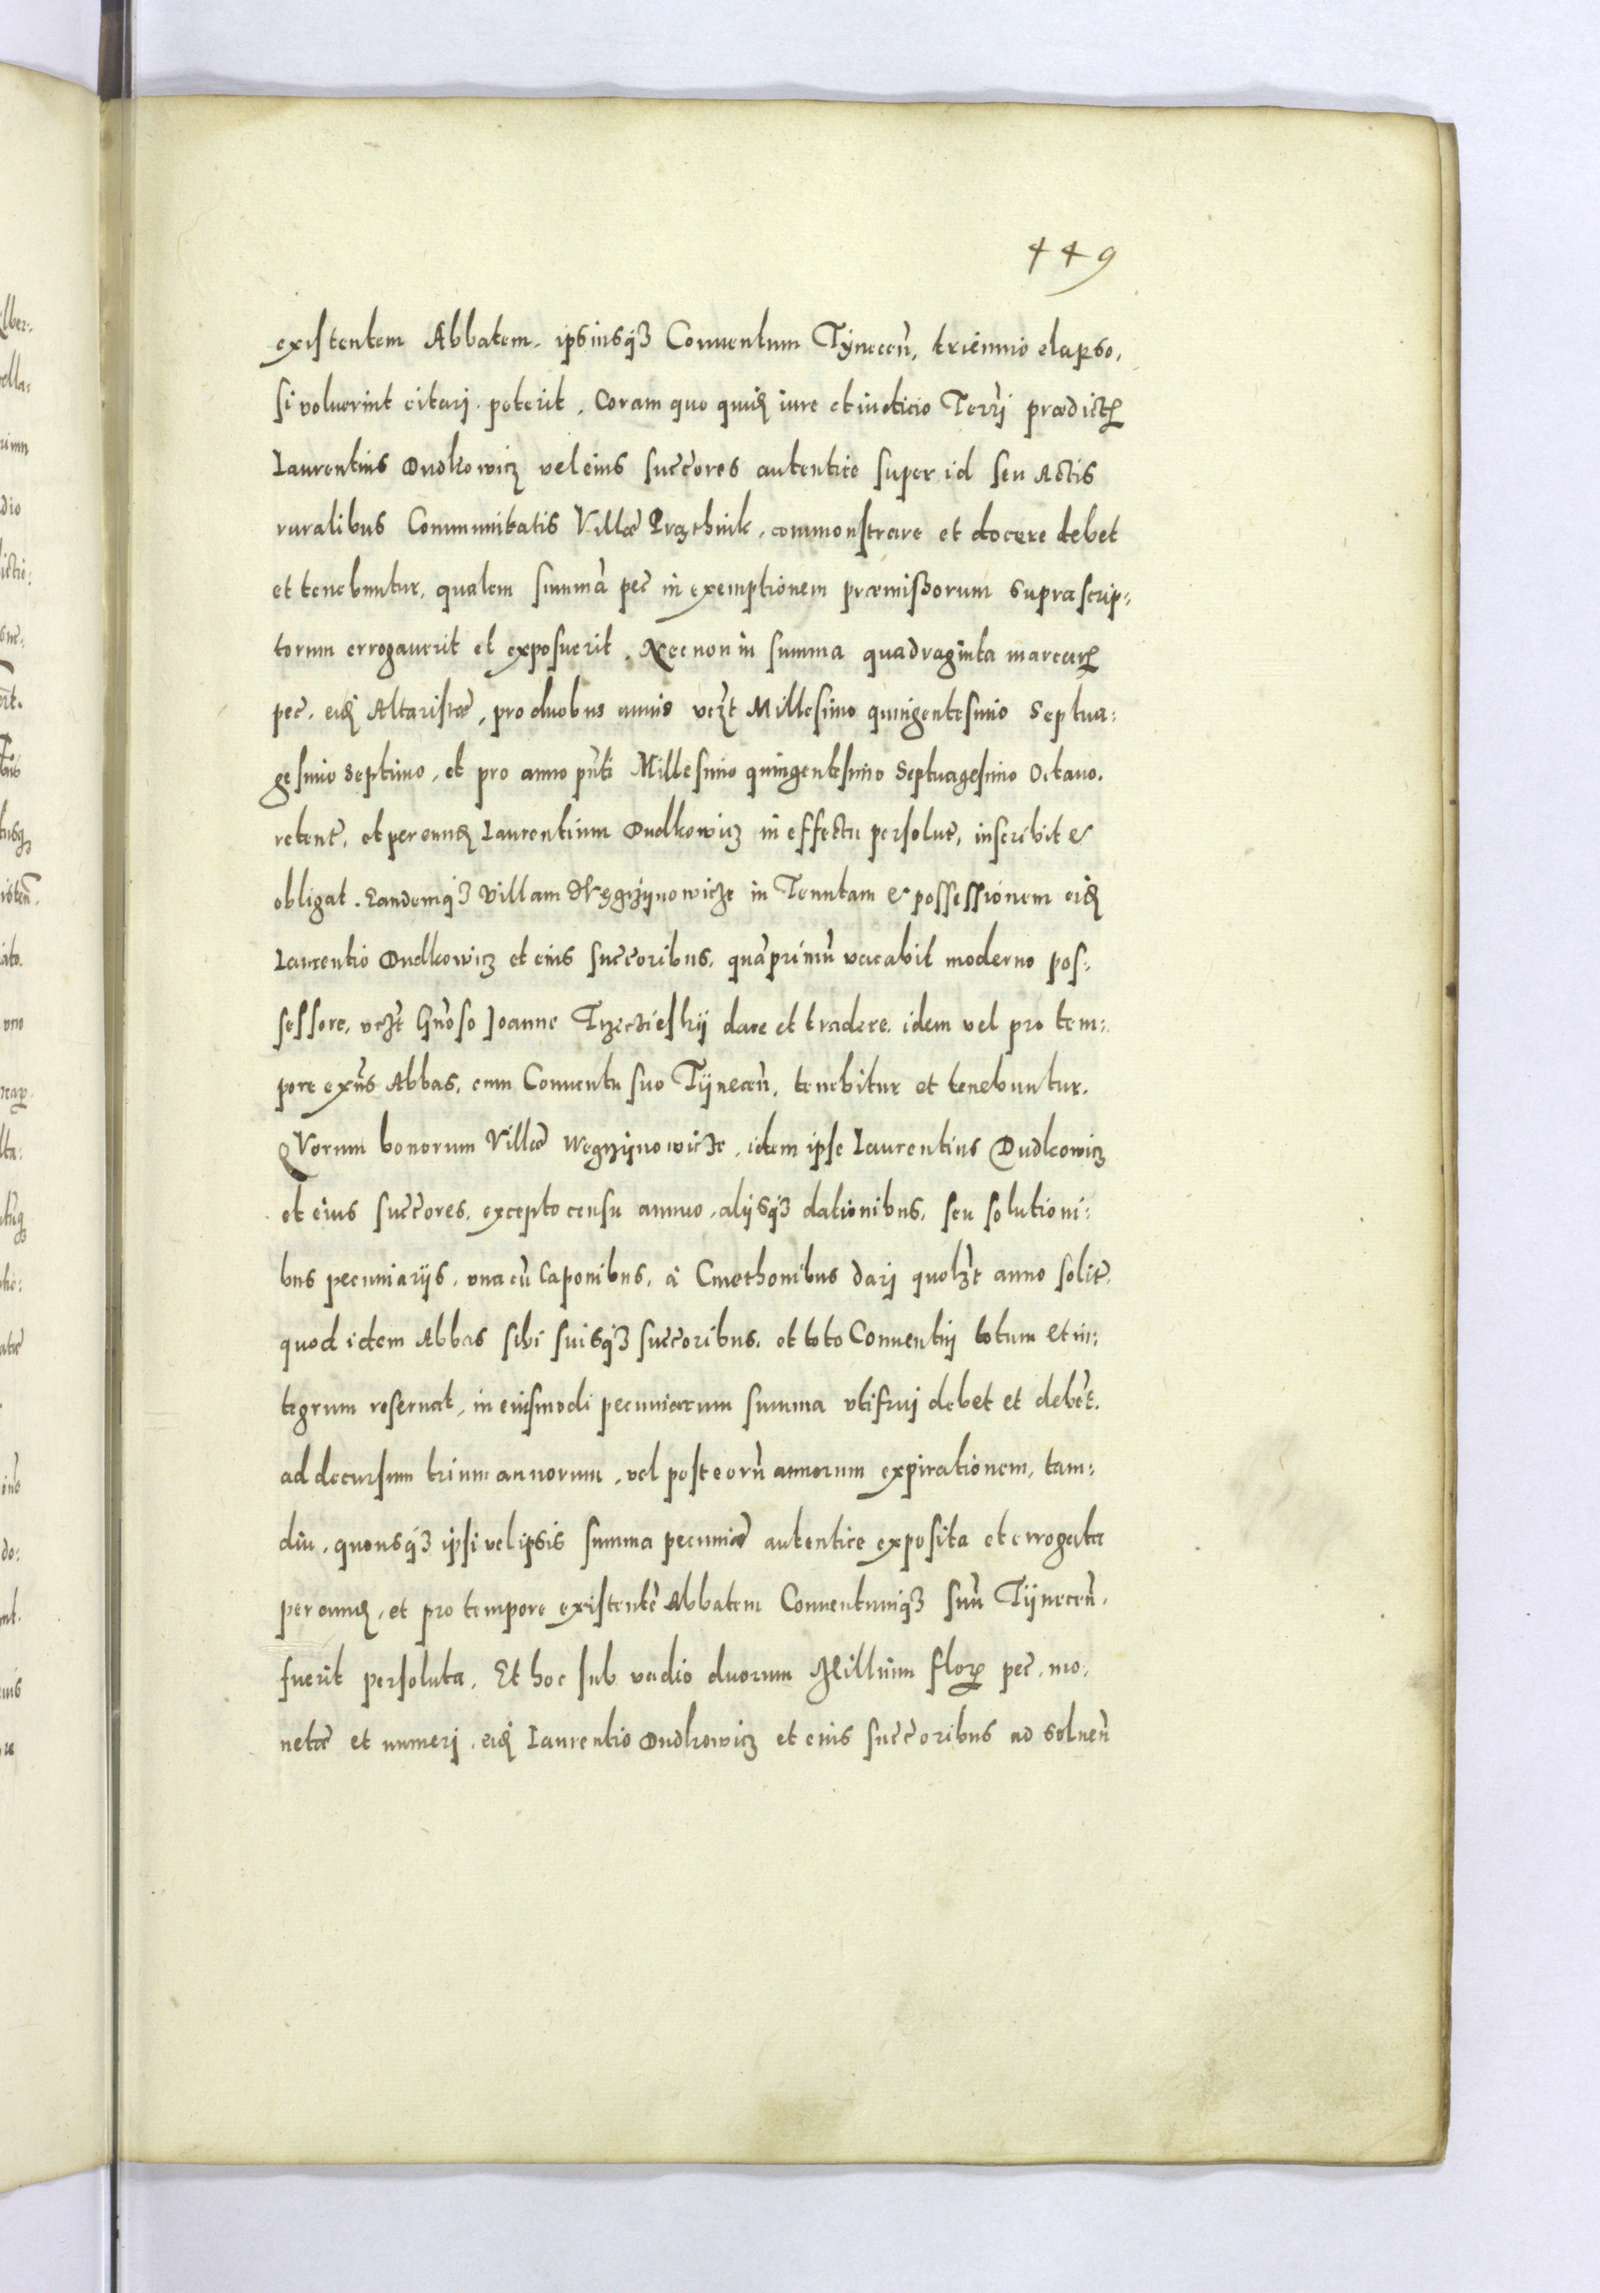 449
existentem Abbatem, ipsiusq3 Conuentum Tÿnecen̄, triennio elapso,
si voluerint citari poterit. Coram quo quid iure et iudicio Terri prædict
Laurentius Dudkowicz vel eius succ̄ores autentice super id seu Actis
ruralibus Communitatis Villæ commonstrare et docere debet
et tenebuntur, qualem summā pec̄ in exemptionem præmissorum suprascrip:
torum errogauerit et exposuerit. Necnon in summa quadraginta marcar
pec̄. eid Altaristæ, pro duobus annis vez̄t Millesimo quingentesimo Septua:
gesimo septimo, et pro anno pn̄ti Millesimo quingentesimo Septuagesimo Octauo.
retent̄, et per eund Laurentium Dudkowicz in effectu persolut̄, inscribit &
obligat. Eandemq3 Villam Węgrzÿnowicze in Tenutam & possessionem eid
Laurentio Dudkowicz et eius succ̄oribus, quāprimū vacabit moderno pos:
sessore, vez̄t Gn̄oso Joanne Trzeczieskÿ dare et tradere, idem vel pro tem:
pore exn̄s Abbas, cum Conuentu suo Tÿnecen̄, tenebitur et tenebuntur.
QVorum bonorum Villæ Wegrzÿnowicze, idem ipse Laurentius Dudkowicz
et eius succ̄ores, excepto censu annuo, alijsq3 dationibus, seu solutioni:
bus pecuniarijs, vna cū Caponibus, à Cmethonibus dari quolz̄t anno solit̄,
quod idem Abbas sibi suisq3 succ̄oribus, et toto Conuentuj totum et in:
tegrum reseruat, in eiusmodi pecuniarum summa vtifruj debet et debēt.
ad decursum trium annorum, vel post eorū annorum expirationem, tam:
diu, quousq3 ipsi vel ipsis summa pecuniæ autentice exposita et errogata
per eund, et pro tempore existentē Abbatem Conuentumq3 suū Tÿnecen̄.
fuerit persoluta. Et hoc sub vadio duorum Millium flor pec̄. mo.
netæ et numerj, eid Laurentio Dudkowicz et eius succ̄oribus ad soluen̄